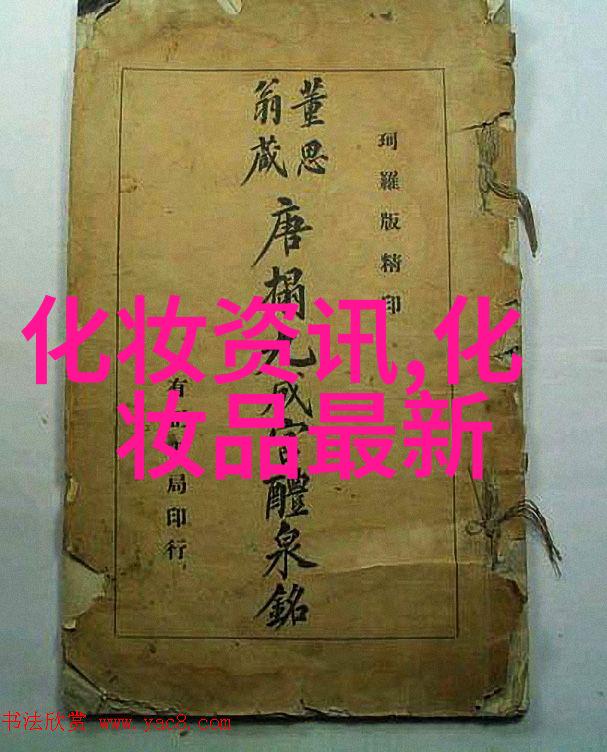 珂羅版精印
董思
翁藏
唐榻九成宮醴泉銘
有局印行
化妆资讯,化
妆品最新
书法欣赏 www.yac8.com